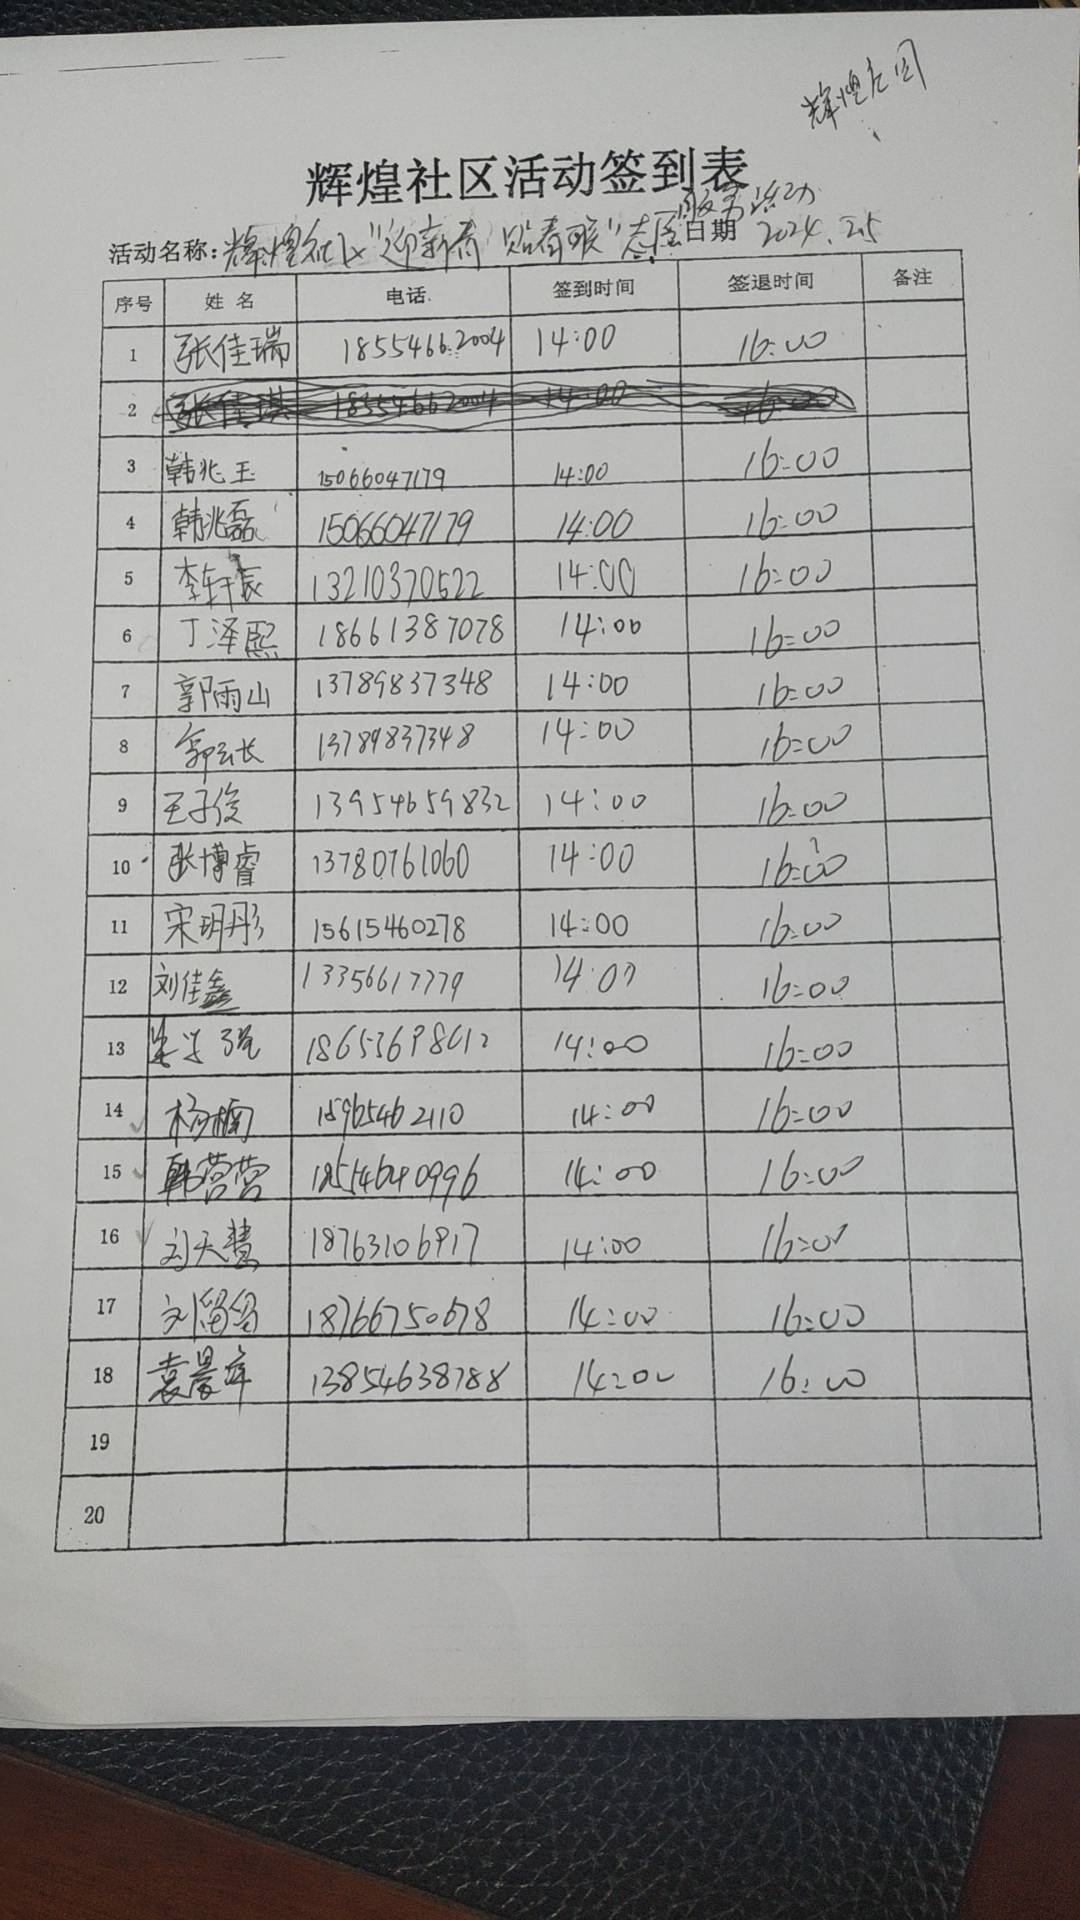 辉煌社区
辉煌社区活动签到表
服务活动
活动名称:辉煌社区"迎新春 贴春联"志愿 日期 2024.2.5
序号 姓名 电话 签到时间 签退时间 备注
1 张佳瑞 18554662004 14:00 16:00
2 张佳琪 18554662004 14:00 16:00
3 韩兆玉 15066047179 14:00 16:00
4 韩兆磊 15066047179 14:00 16:00
5 李轩辰 13210370522 14:00 16:00
6 丁泽熙 18661387078 14:00 16:00
7 郭雨山 13789837348 14:00 16:00
8 13789837348 14:00 16:00
9 王子俊 13954659832 14:00 16:00
10 张博睿 13780761060 14:00 16:00
11 宋玥彤 15615460278 14:00 16:00
12 刘佳鑫 13356617779 14:00 16:00
13 14:00 16:00
14 杨楠 15965462110 14:00 16:00
15 韩营营 18554640996 14:00 16:00
16 刘天慧 18763106917 14:00 16:00
17 刘留留 18766750678 14:00 16:00
18 袁晨库 13854638788 14:00 16:00
19
20